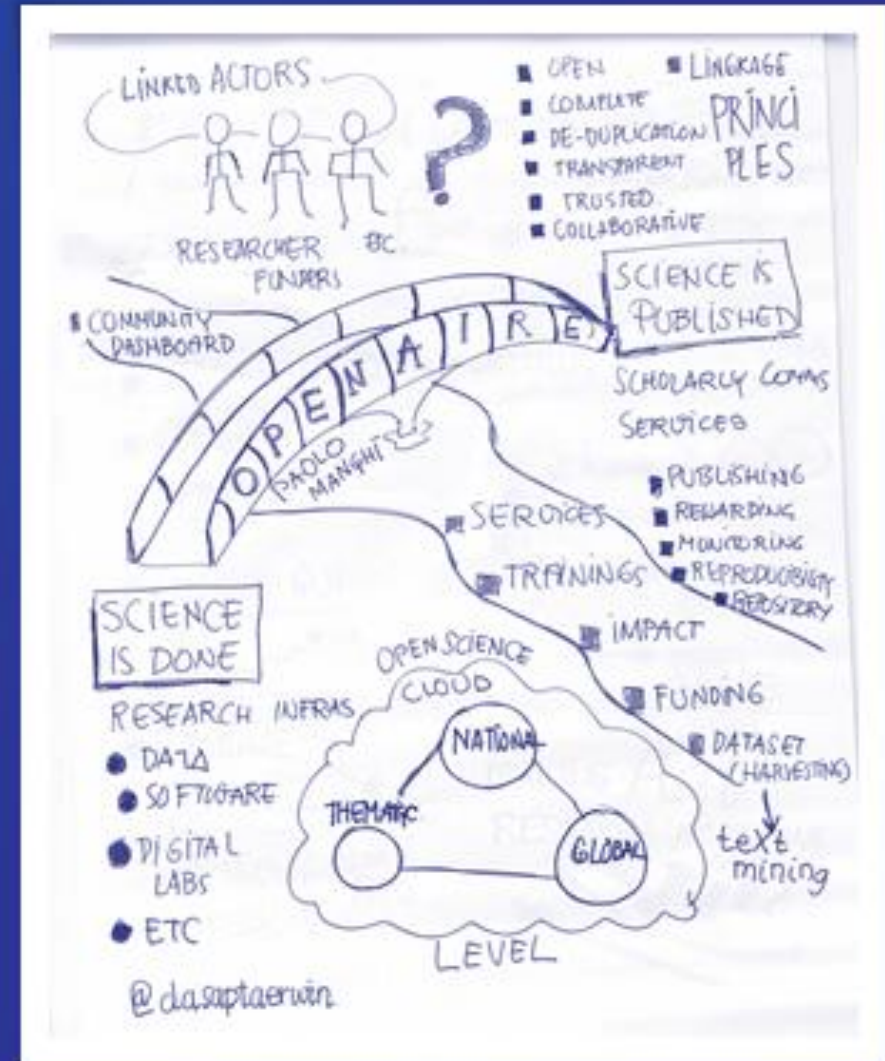 LINKED ACTORS
?
RESEARCHER
FUNDERS
EC
OPEN
COMPLETE
DE-DUPLICATION
TRANSPARENT
TRUSTED
COLLABORATIVE
LINGKAGE
PRINCI
PLES
COMMUNITY
DASHBOARD
OPENAIRE
PAOLO
MANGHI
SCIENCE IS
PUBLISHED
SCHOLARLY COMMS
SERVICES
PUBLISHING
REWARDING
MONITORING
REPRODUCIBILITY
REPOSITORY
SERVICES
TRAININGS
IMPACT
FUNDING
DATASET
(HARVESTING)
text
mining
SCIENCE
IS DONE
RESEARCH INFRAS
DATA
SOFTWARE
DIGITAL
LABS
ETC
OPEN SCIENCE
CLOUD
NATIONAL
THEMATIC
GLOBAL
LEVEL
@dasaptaerwin